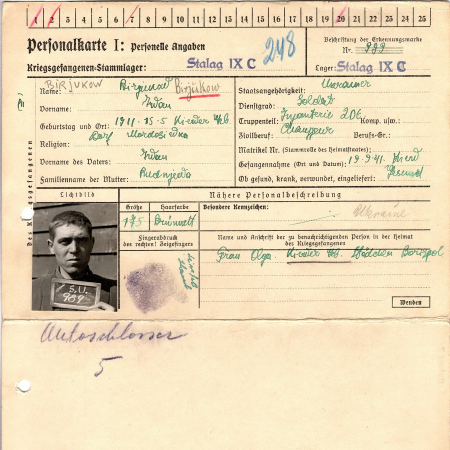 1 2 3 4 5 6 7 8 9 10 11 12 13 14 15 16 17 18 19 20 21 22 23 24 25
Personalkarte I: Personelle Angaben
Kriegsgefangenen-Stammlager: Stalag IX C
248
Beschriftung der Erkennungsmarke
Nr. 989
Lager: Stalag IX C
Des Kriegsgefangenen
BIRJUKOW
Name: Birjukow
Vorname: Iwan
Geburtstag und Ort: 1911-15-5 Kiewer
Religion: Dorf
Vorname des Vaters: Iwan
Familienname der Mutter:
Staatsangehörigkeit:
Dienstgrad: Soldat
Truppenteil: Infanterie 206 Komp. usw.:
Zivilberuf: Berufs-Gr.:
Matrikel Nr. (Stammrolle des Heimatstaates):
Gefangennahme (Ort und Datum): 19.9.41. Kiew
Ob gesund, krank, verwundet, eingeliefert: Gesund
Lichtbild
Nähere Personalbeschreibung
Größe Haarfarbe
175
Besondere Kennzeichen:
Ukraine
Fingerabdruck
des rechten! Zeigefingers
Name und Anschrift der zu benachrichtigenden Person in der Heimat
des Kriegsgefangenen
Frau Olga. Kiewer
S.U.
989
Wenden
Autoschlosser
5